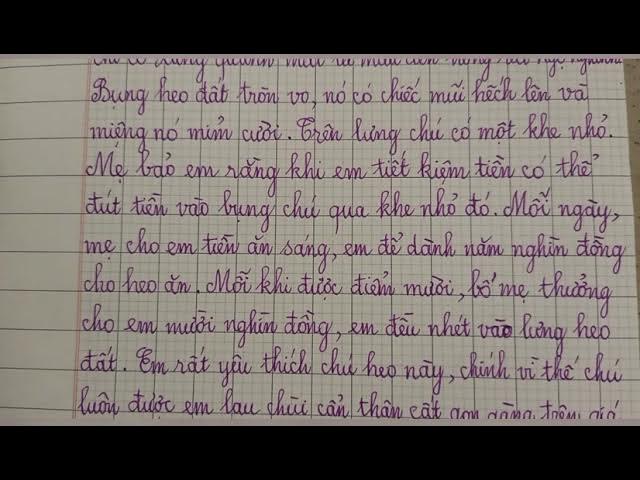 Bụng heo đất tròn vo, nó có chiếc mũi hếch lên và
miệng nó mỉm cười. Trên lưng chú có một khe nhỏ.
Mẹ bảo em rằng khi em tiết kiệm tiền có thể
đút tiền vào bụng chú qua khe nhỏ đó. Mỗi ngày,
mẹ cho em tiền ăn sáng, em để dành năm nghìn đồng
cho heo ăn. Mỗi khi được điểm mười, bố mẹ thưởng
cho em mười nghìn đồng, em đều nhét vào lưng heo
đất. Em rất yêu thích chú heo này, chính vì thế chú
luôn được em lau chùi cẩn thận cất gọn gàng trên giá